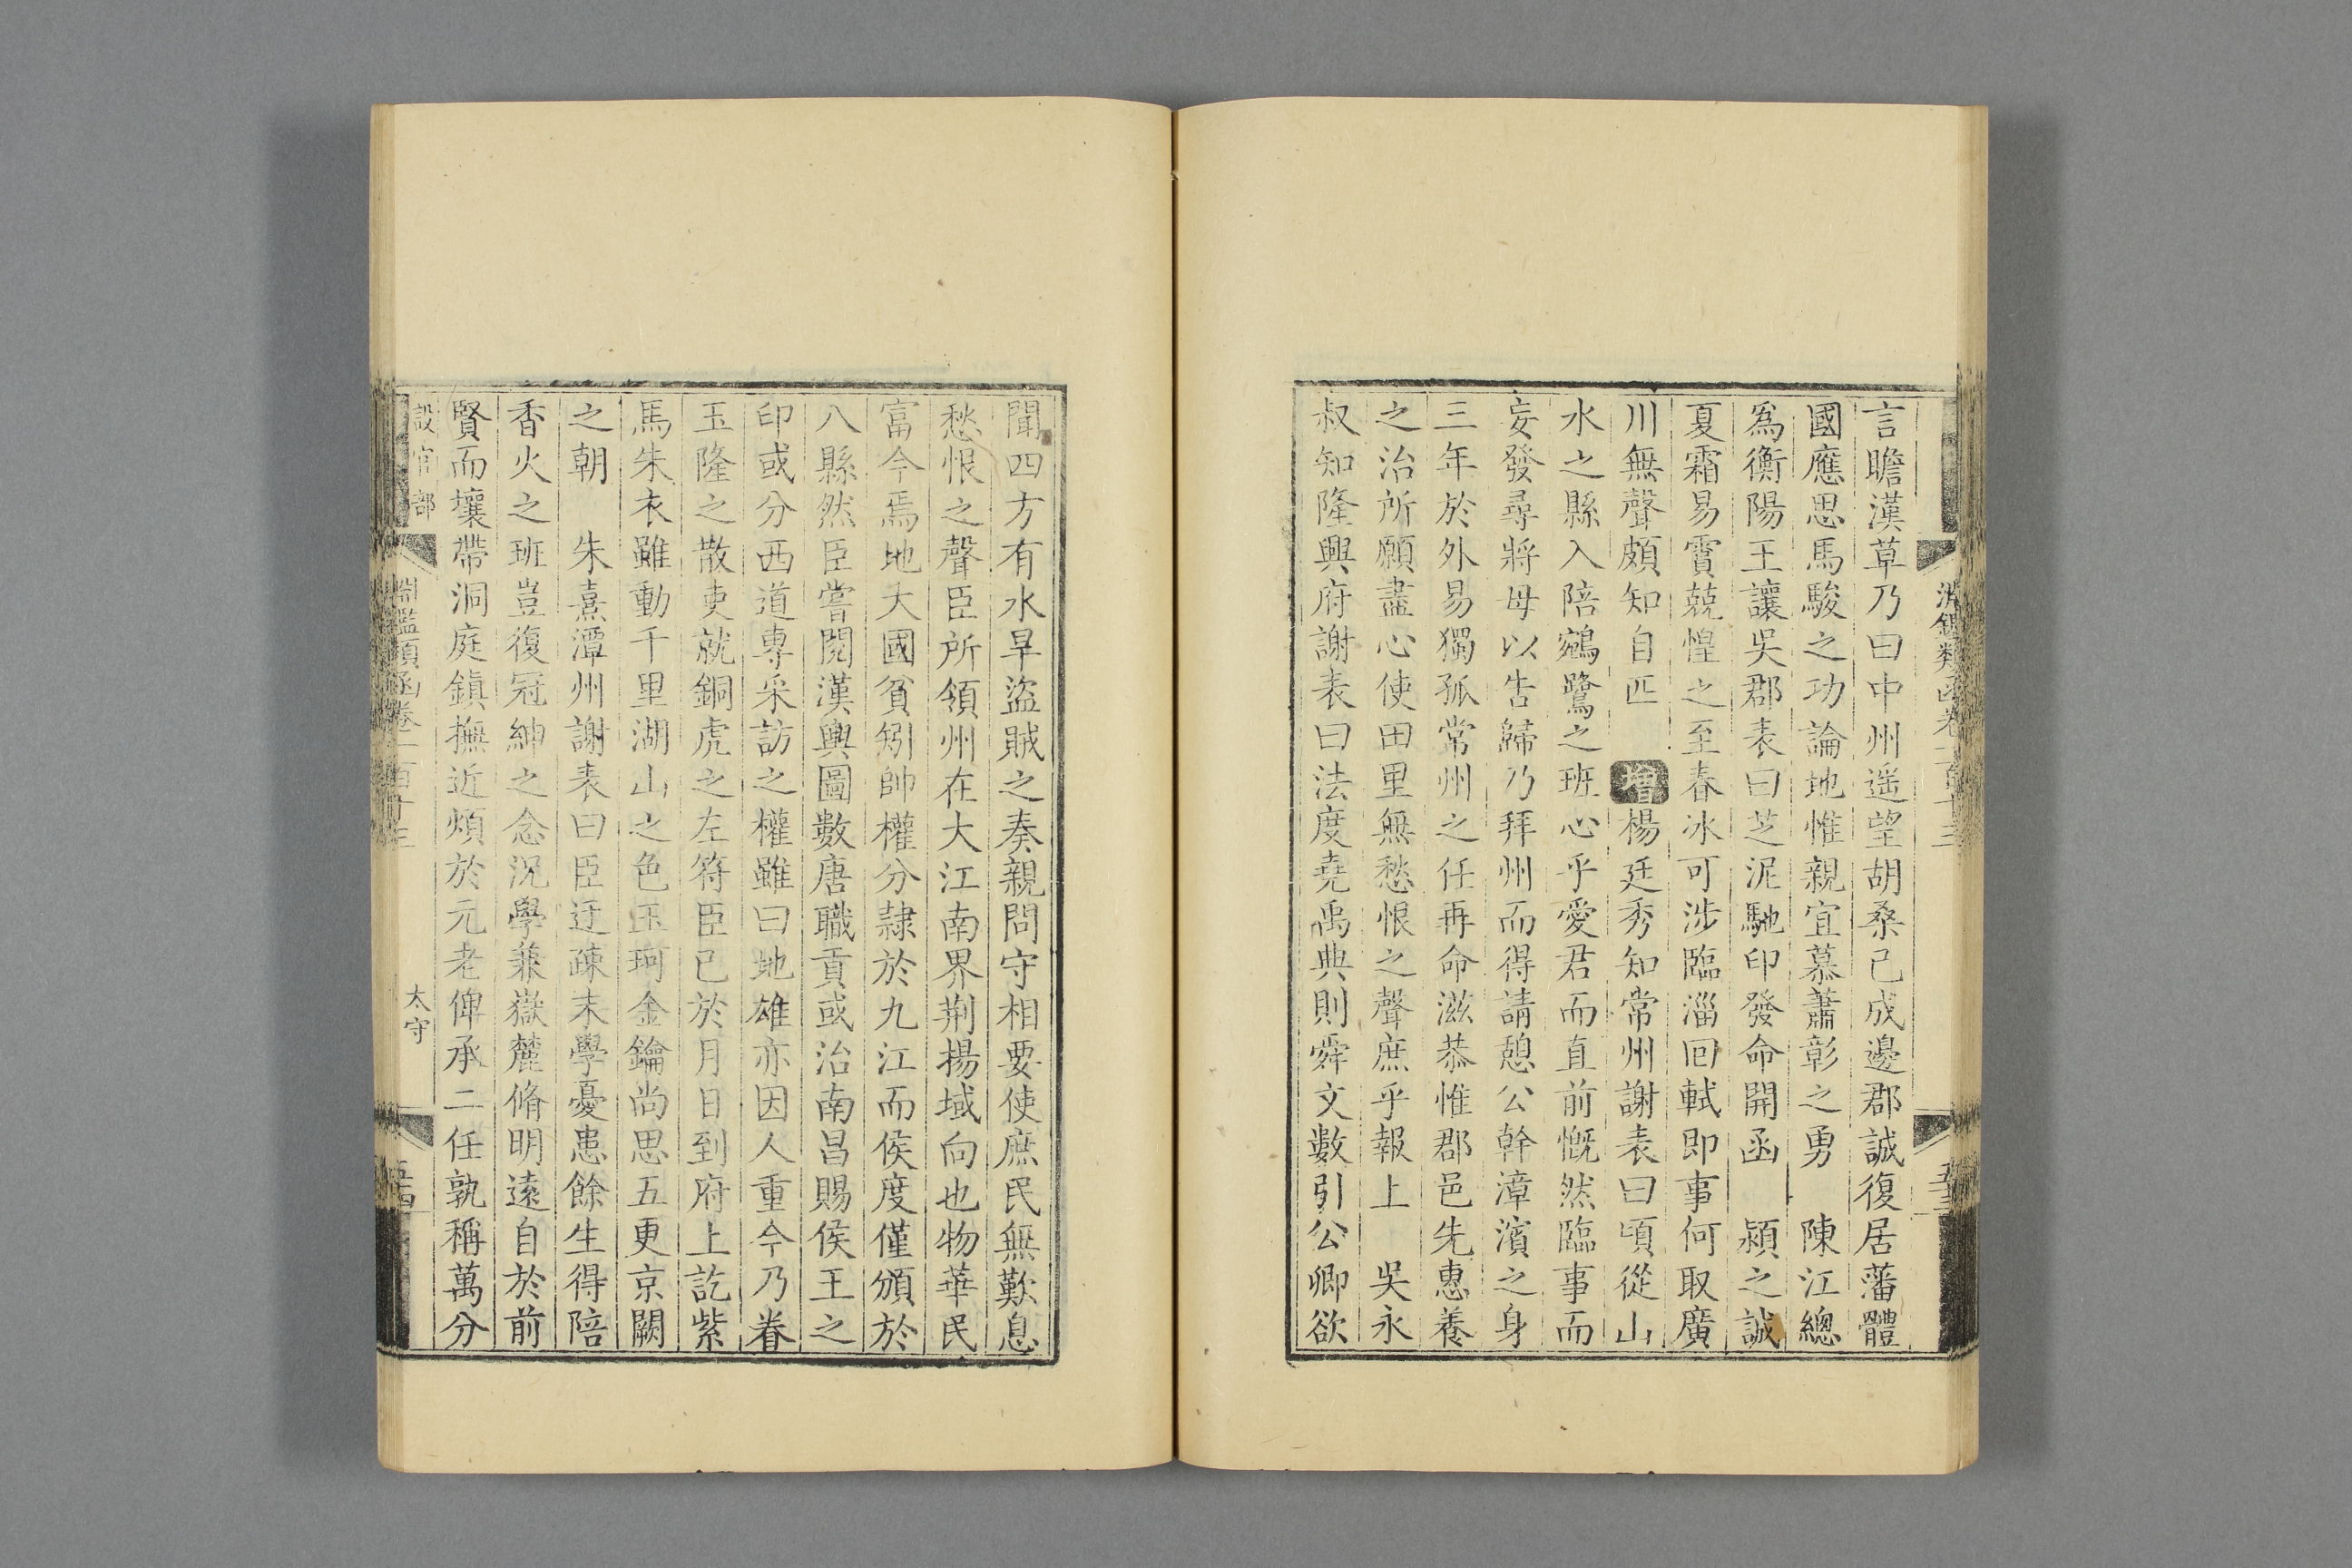 言瞻漢草乃曰中州遥望胡桑已成邊郡誠復居藩體
國應思馬駿之功論地惟親宜慕蕭彰之勇　陳江總
爲衡陽王讓吳郡表曰芝泥馳印發命開函　潁之誠
夏霜易霣兢惶之至春冰可涉臨淄囘軾即事何取廣
川無聲頗知自匹　增楊廷秀知常州謝表曰頃從山
水之縣入陪鵷鷺之班心乎愛君而直前慨然臨事而
妄發尋將母以告歸乃拜州而得請憩公幹漳濱之身
三年於外易獨孤常州之任再命滋恭惟郡邑先惠養
之治所願盡心使田里無愁恨之聲庶乎報上　吳永
叔知隆興府謝表曰法度堯禹典則舜文數引公卿欲
聞四方有水旱盜賊之奏親問守相要使庶民無歎息
愁恨之聲臣所領州在大江南界荆揚域向也物華民
富今焉地大國貧矧帥權分隸於九江而侯度僅頒於
八縣然臣嘗閱漢輿圖數唐職貢或治南昌賜侯王之
印或分西道專采訪之權雖曰地雄亦因人重今乃眷
玉隆之散吏就銅虎之左符臣已於月日到府上訖紫
馬朱衣雖動千里湖山之色玉珂金鑰尚思五更京闕
之朝　朱熹潭州謝表曰臣迂疎末學憂患餘生得陪
香火之班豈復冠紳之念況學兼嶽麓脩明遠自於前
賢而壤帶洞庭鎭撫近煩於元老俾承二任孰稱萬分
設官部　淵鑑類函卷一百十三　太守　五十四